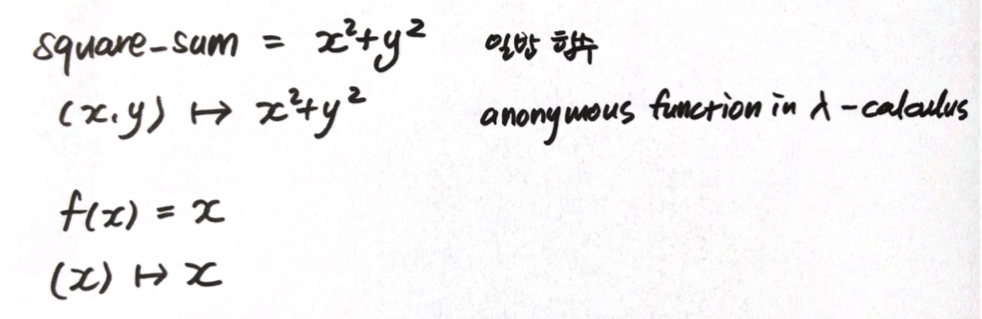 square-sum = x²+y² 일반 함수
(x,y) ↦ x²+y² anonymous function in λ-calculus
f(x) = x
(x) ↦ x